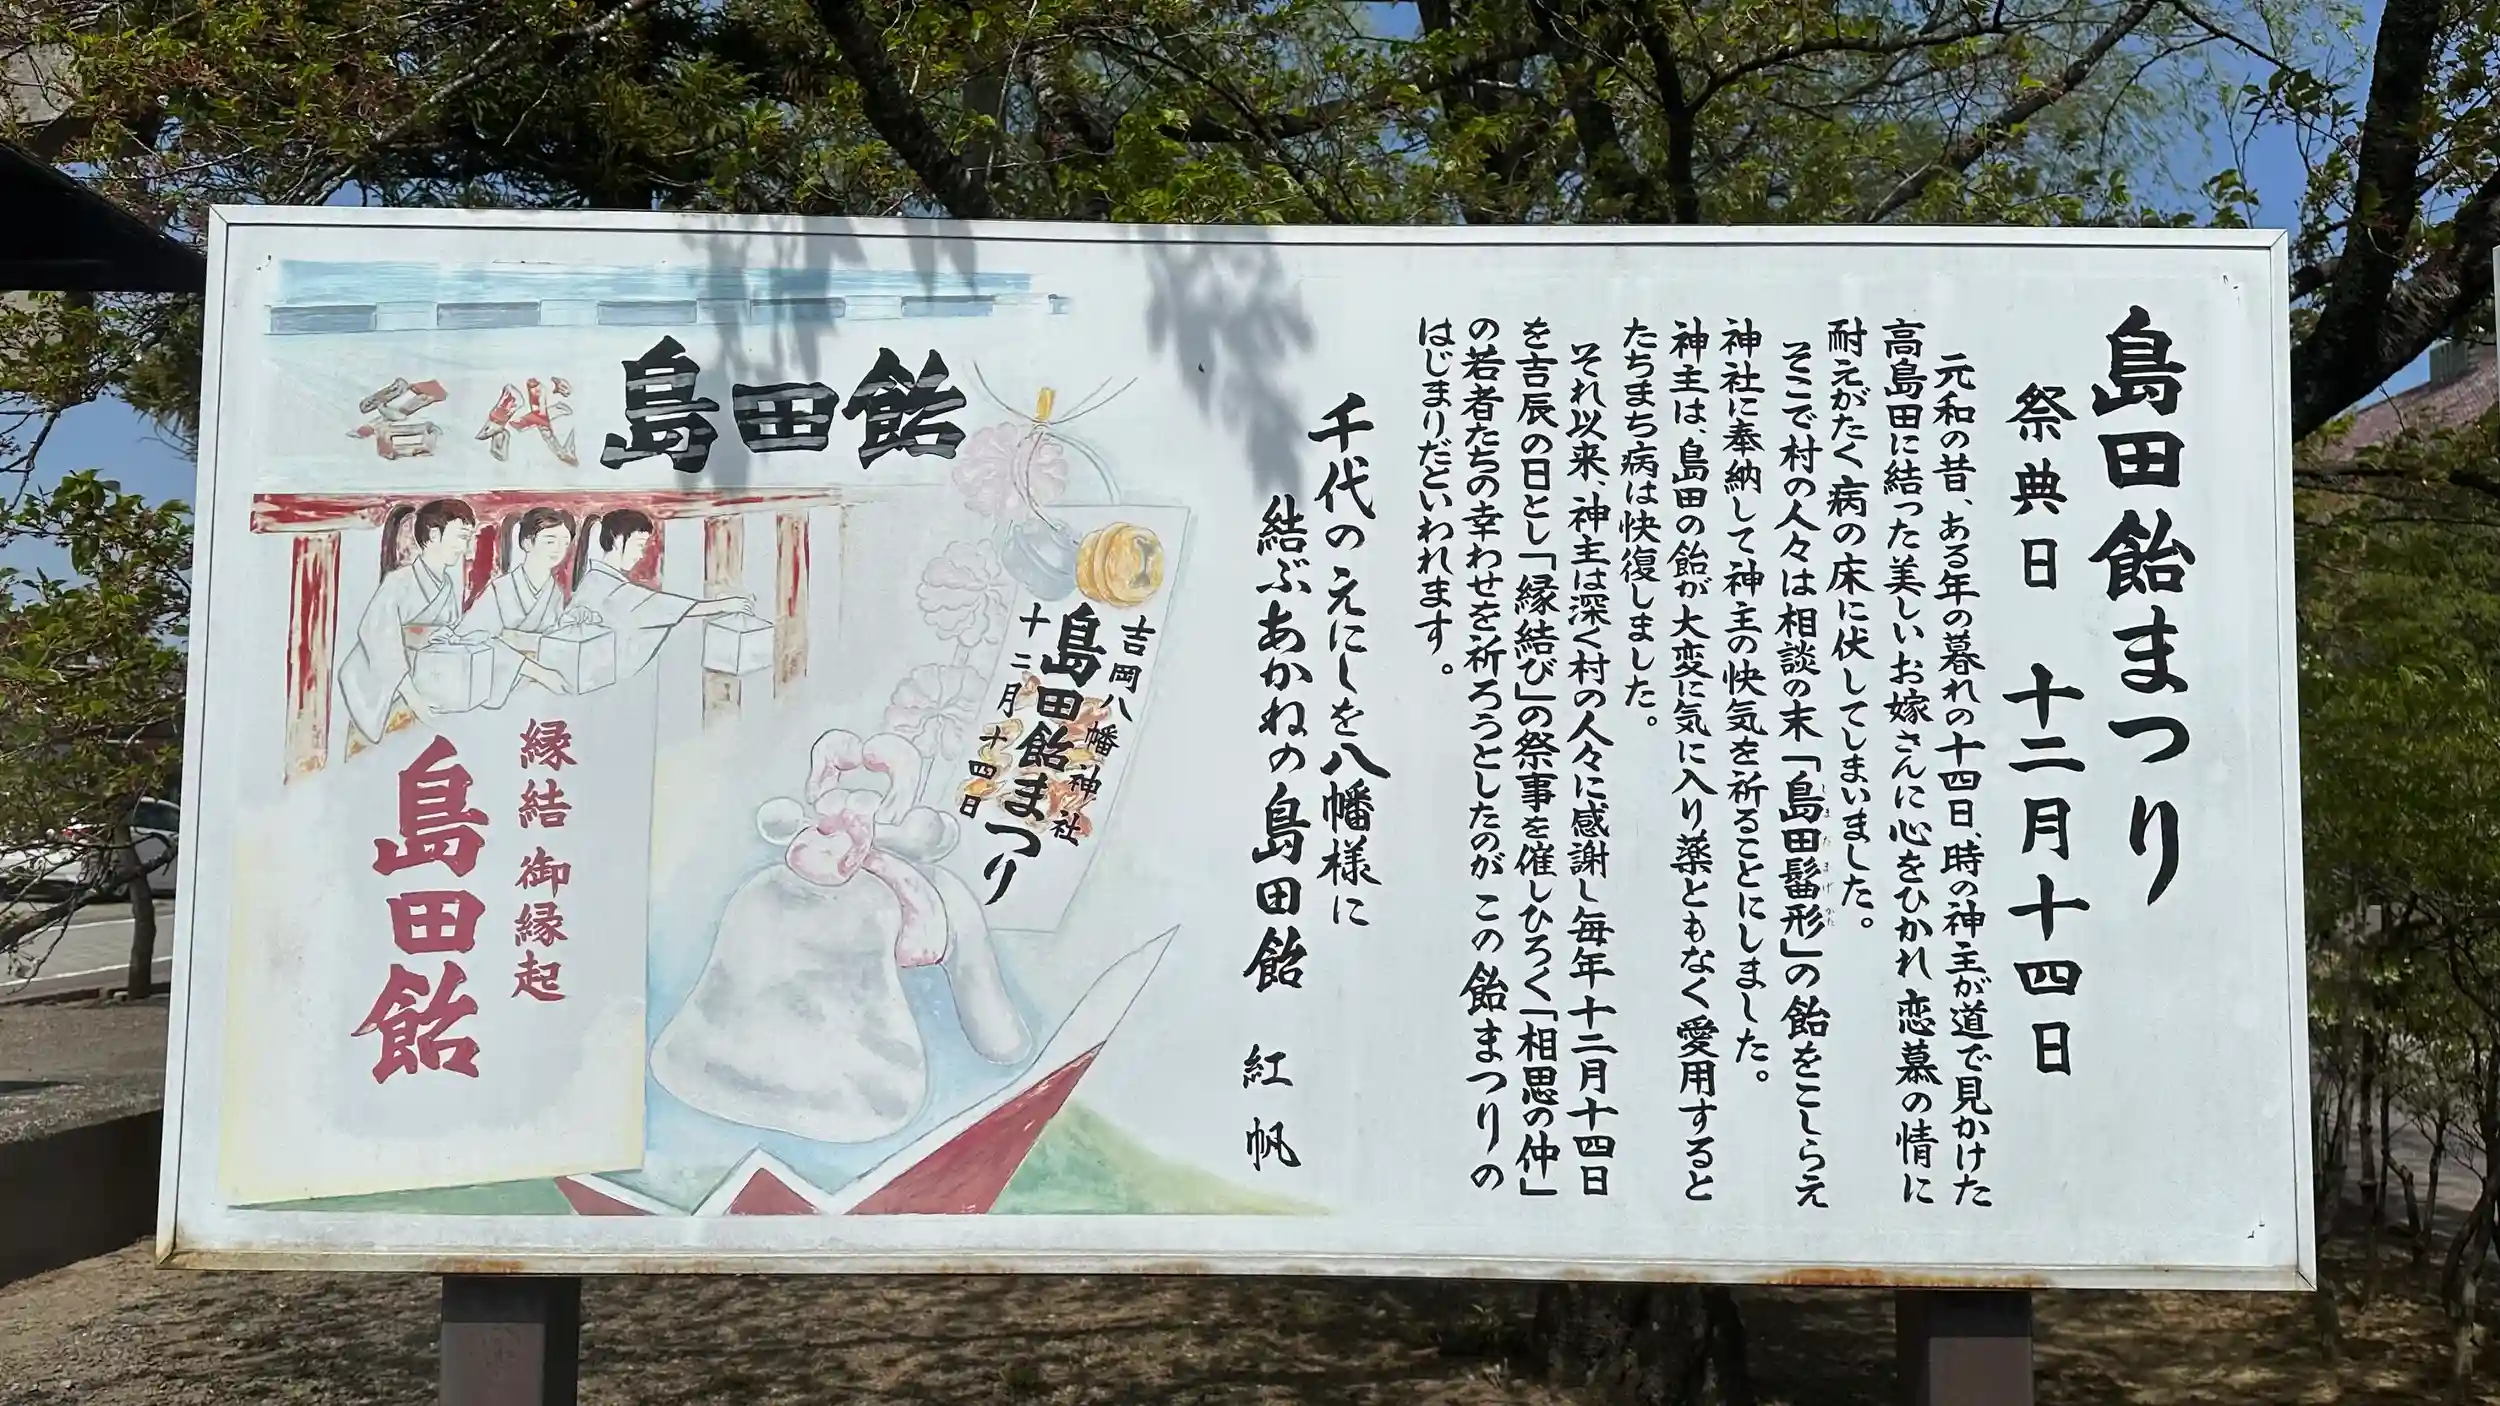 島田飴まつり
祭典日 十二月十四日
元和の昔、ある年の暮れの十四日、時の神主が道で見かけた
高島田に結った美しいお嫁さんに心をひかれ恋慕の情に
耐えがたく病の床に伏してしまいました。
そこで村の人々は相談の末「島田髷形」の飴をこしらえ
しまだまげがた
神社に奉納して神主の快気を祈ることにしました。
神主は、島田の飴が大変に気に入り薬ともなく愛用すると
たちまち病は快復しました。
それ以来、神主は深く村の人々に感謝し毎年十二月十四日
を吉辰の日とし「縁結び」の祭事を催しひろく「相思の仲」
の若者たちの幸わせを祈ろうとしたのがこの飴まつりの
はじまりだといわれます。
千代のえにしを八幡様に
結ぶあかねの島田飴 紅帆
名代 島田飴
吉岡八幡神社
島田飴まつり
十二月十四日
縁結 御縁起
島田飴